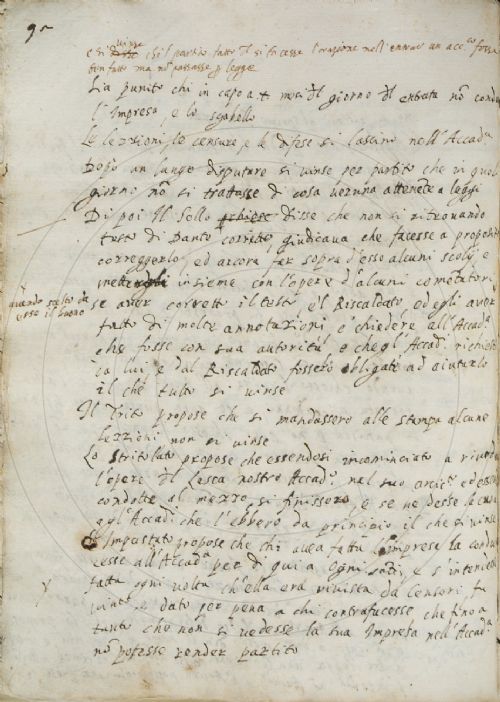 95
e si vinse ch'il partito fatto che si facesse l'orazione nell'entrar un acc.co fosse
ben fatto ma nõ passasse p legge
Sia punito chi in capo a t mesi dl giorno dl entrata nõ condu
l'Impresa, e lo sgabello
Le lezzioni, le censure, e le difese si lascino nell'Accad.a
Dopo un lungo disputare si vinse per partito che in quel
giorno nõ si trattasse di cosa veruna attenete a leggi
Di poi Il Sollo disse che non si ritrovando
testo di Dante corretto giudicava che facesse a proposito
correggerlo, ed ancora far sopra d'esso alcuni scolij e
mettergli insieme con l'opere d'alcuni comẽtatori
quando scelto da
esse il buono
se aver corretto il testo, e'l Riscaldato ed egli aver
fatto di molte annotazioni e chiedere all'Accad.a
che fosse con sua autorità e che gl'Accad.i richiesti
da lui, e dal Riscaldato fossero obligati ad aiutarlo
il che tutto si vinse
Il Trito propose che si mandassero alle stampa alcune
lezzioni non si vinse
Lo Stritolato propose che essendosi incominciato a rivedere
l'opere dl Lasca nostro Accad.o nel suo ed essendo
condotte al mezzo si finissero, e se ne desse la cura
agl'Accad.i che l'ebbero da principio il che si vinse
Lo Impastato propose che chi avea fatta l'impresa la condu
cesse all'Accad.a per di qui a Ogni e s'intendesse
fatta ogni volta ch'ella era rivista da Censori, fu
vinto, e dato per pena a chi contrafacesse che fino a
tanto che non si vedesse la sua Impresa nell'Accad.a
nõ potesse render partito